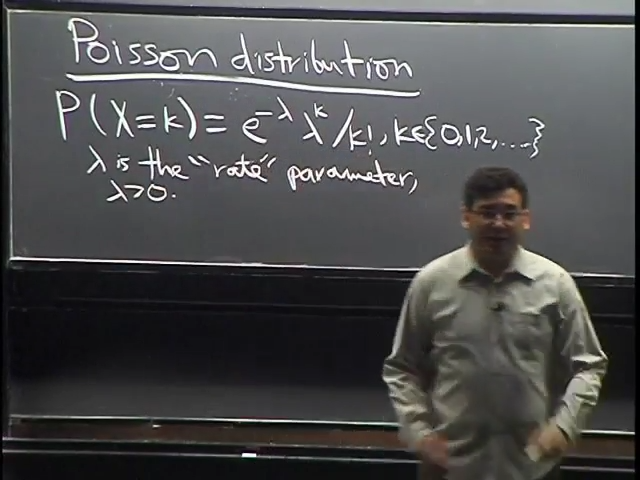 Poisson distribution
P(X=k) = e^{-λ} λ^k / k!, k∈{0,1,2,....}
λ is the "rate" parameter,
λ>0.